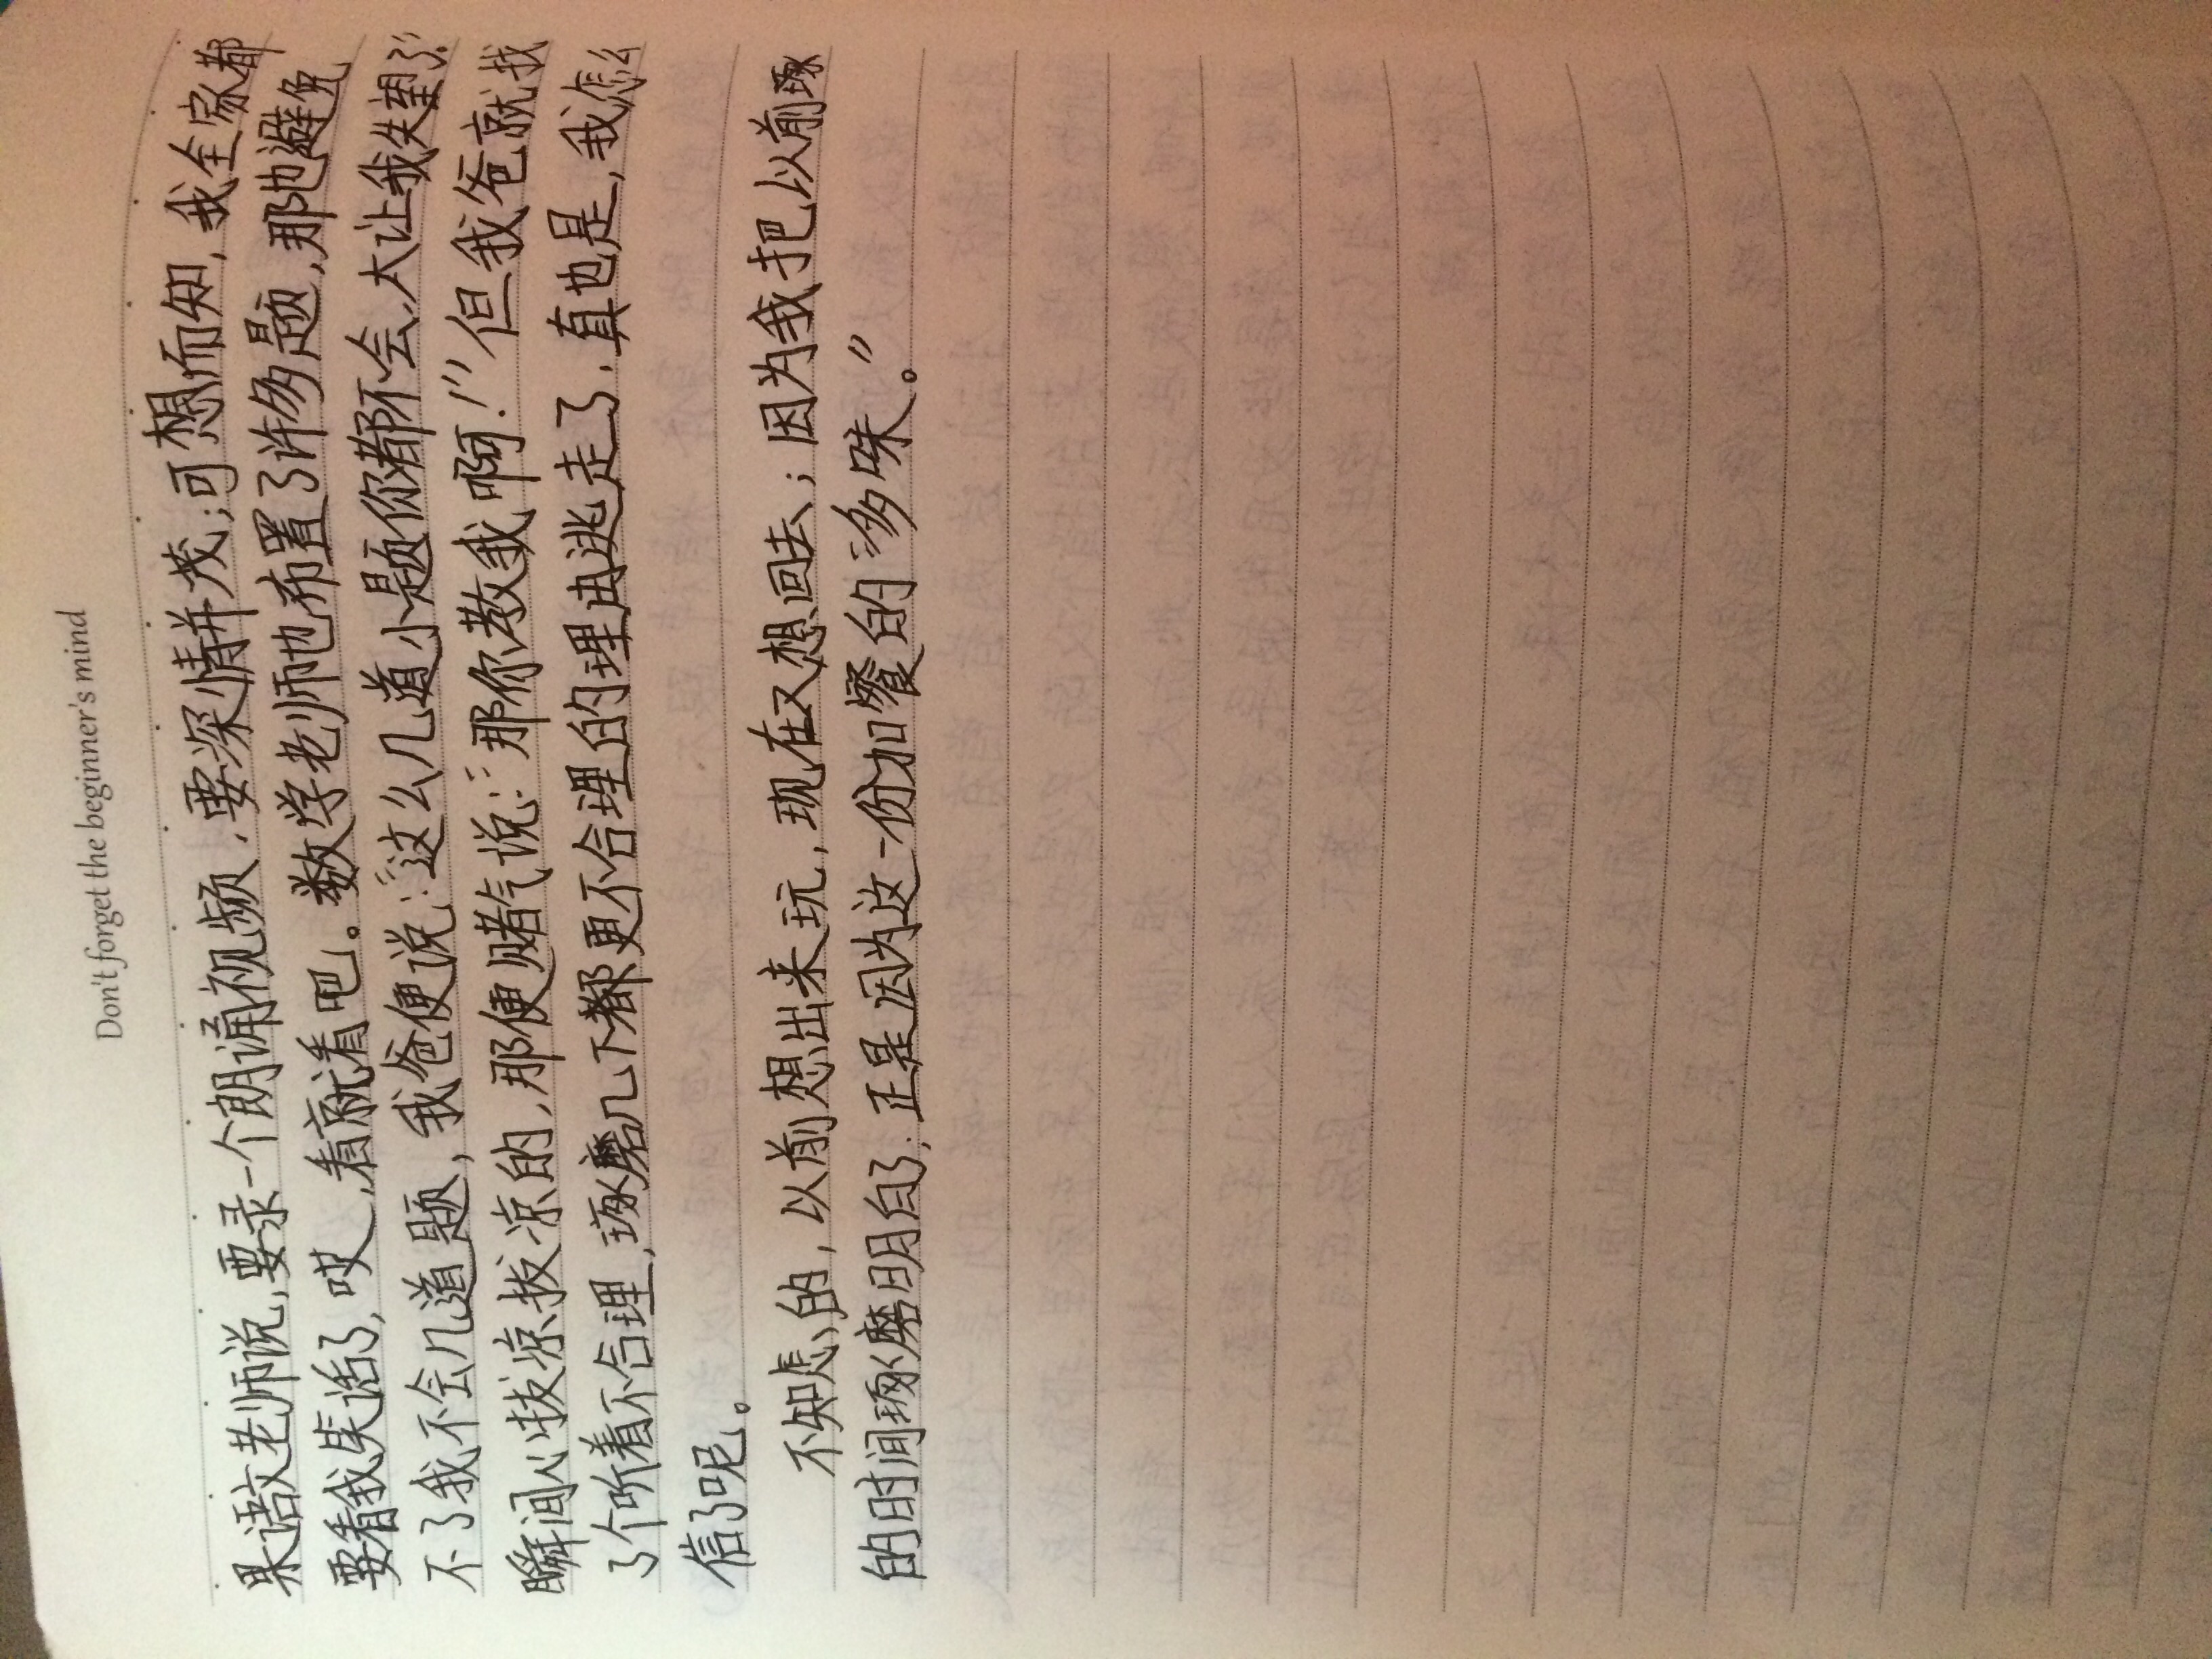 Don't forget the beginner's mind
果语文老师说,要录一个朗诵视频,要深情并茂;可想而知,我全家都
要看我笑话了,哎,看就看吧。数学老师也布置了许多题,那也避免
不了我不会几道题,我爸便说:“这么几道小题你都不会,太让我失望了”
瞬间心拔凉拔凉的,那便赌气说:“那你教我啊!”但我爸就找
了个听着不合理,琢磨几下都更不合理的理由逃走了,真也是,我怎么
信了呢。
不知怎的,以前想出来玩,现在又想回去;因为我把以前琢
的时间琢磨明白了;正是因为这一份加餐的“多味。”